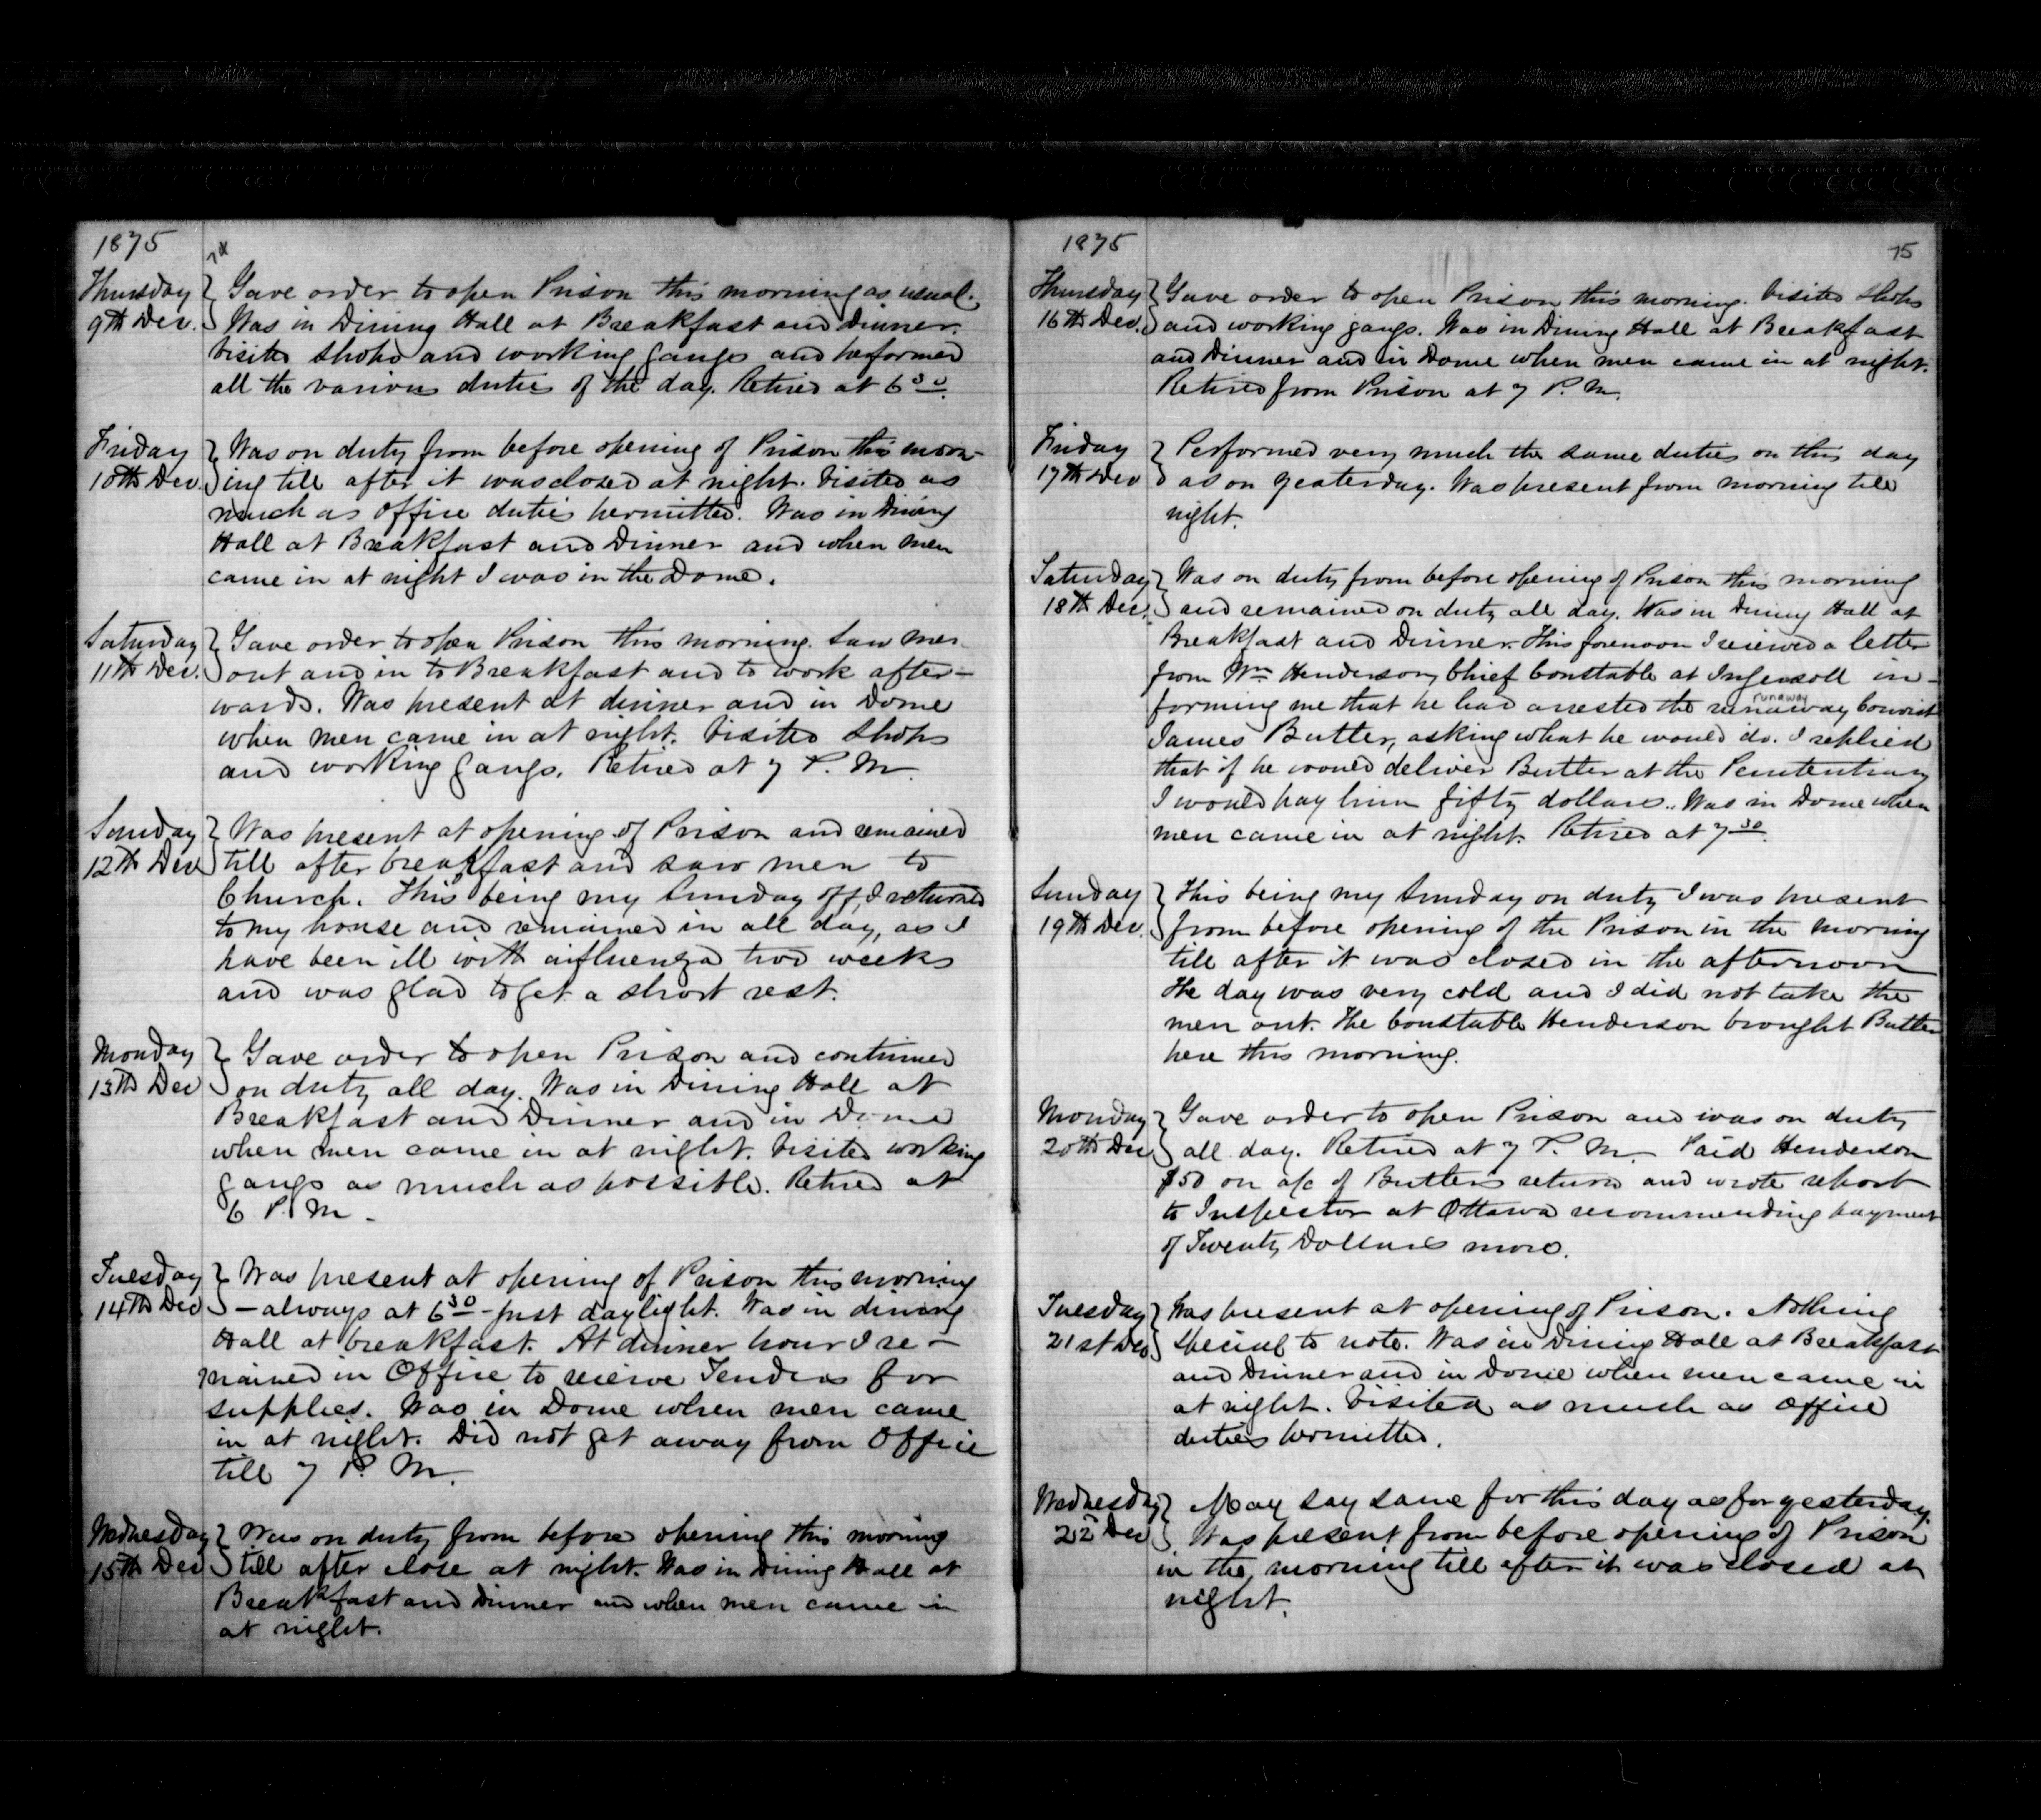 1875
74
Thursday
9th Dec.
Gave order to open Prison this morning as usual.
Was in Dining Hall at Breakfast and dinner.
Visited shops and working gangs and performed
all the various duties of the day. Retired at 6 30.
Friday
10th Dec.
Was on duty from before opening of Prison this morn-
ing till after it was closed at night. Visited as
much as office duties permitted. Was in Dining
Hall at Breakfast and Dinner and when men
came in at night I was in the Dome.
Saturday
11th Dec.
Gave order to open Prison this morning. Saw men
out and in to Breakfast and to work after-
wards. Was present at dinner and in Dome
when men came in at night. Visited Shops
and working gangs. Retired at 7 P. M.
Sunday
12th Dec
Was present at opening of Prison and remained
till after breakfast and saw men to
Church. This being my Sunday off, I returned
to my house and remained in all day, as I
have been ill with influenza two weeks
and was glad to get a short rest.
Monday
13th Dec
Gave order to open Prison and continued
on duty all day. Was in Dining Hall at
Breakfast and Dinner and in Dome
when men came in at night. Visited working
gangs as much as possible. Retired at
6 P. M.
Tuesday
14th Dec
Was present at opening of Prison this morning
- always at 6 30 - just daylight. Was in dining
Hall at breakfast. At dinner hour I re-
mained in Office to receive Tenders for
supplies. Was in Dome when men came
in at night. Did not get away from Office
till 7 P. M.
Wednesday
15th Dec
Was on duty from before opening this morning
till after close at night. Was in Dining Hall at
Breakfast and Dinner and when men came in
at night.
1875
75
Thursday
16th Dec.
Gave order to open Prison this morning. Visited Shops
and working gangs. Was in Dining Hall at Breakfast
and Dinner and in Dome when men came in at night.
Retired from Prison at 7 P. M.
Friday
17th Dec
Performed very much the same duties on this day
as on yesterday. Was present from morning till
night.
Saturday
18th Dec.
Was on duty from before opening of Prison this morning
and remained on duty all day. Was in Dining Hall at
Breakfast and Dinner. This forenoon I received a letter
from Wm Henderson, Chief Constable at Ingersoll in-
forming me that he had arrested the runaway Convict
runaway
James Butler, asking what he would do. I replied
that if he would deliver Butler at the Penitentiary
I would pay him fifty dollars. Was in Dome when
men came in at night. Retired at 7 30.
Sunday
19th Dec.
This being my Sunday on duty I was present
from before opening of the Prison in the morning
till after it was closed in the afternoon
The day was very cold and I did not take the
men out. The Constable Henderson brought Butler
here this morning.
Monday
20th Dec
Gave order to open Prison and was on duty
all day. Retired at 7 P. M. Paid Henderson
$50 on a/c of Butlers return and wrote report
to Inspector at Ottawa recommending payment
of Twenty Dollars more.
Tuesday
21st Dec
Was present at opening of Prison. Nothing
special to note. Was in Dining Hall at Breakfast
and Dinner and in Dome when men came in
at night. Visited as much as Office
duties permitted.
Wednesday
22d Dec
May say same for this day as for yesterday.
Was present from before opening of Prison
in the morning till after it was closed at
night.